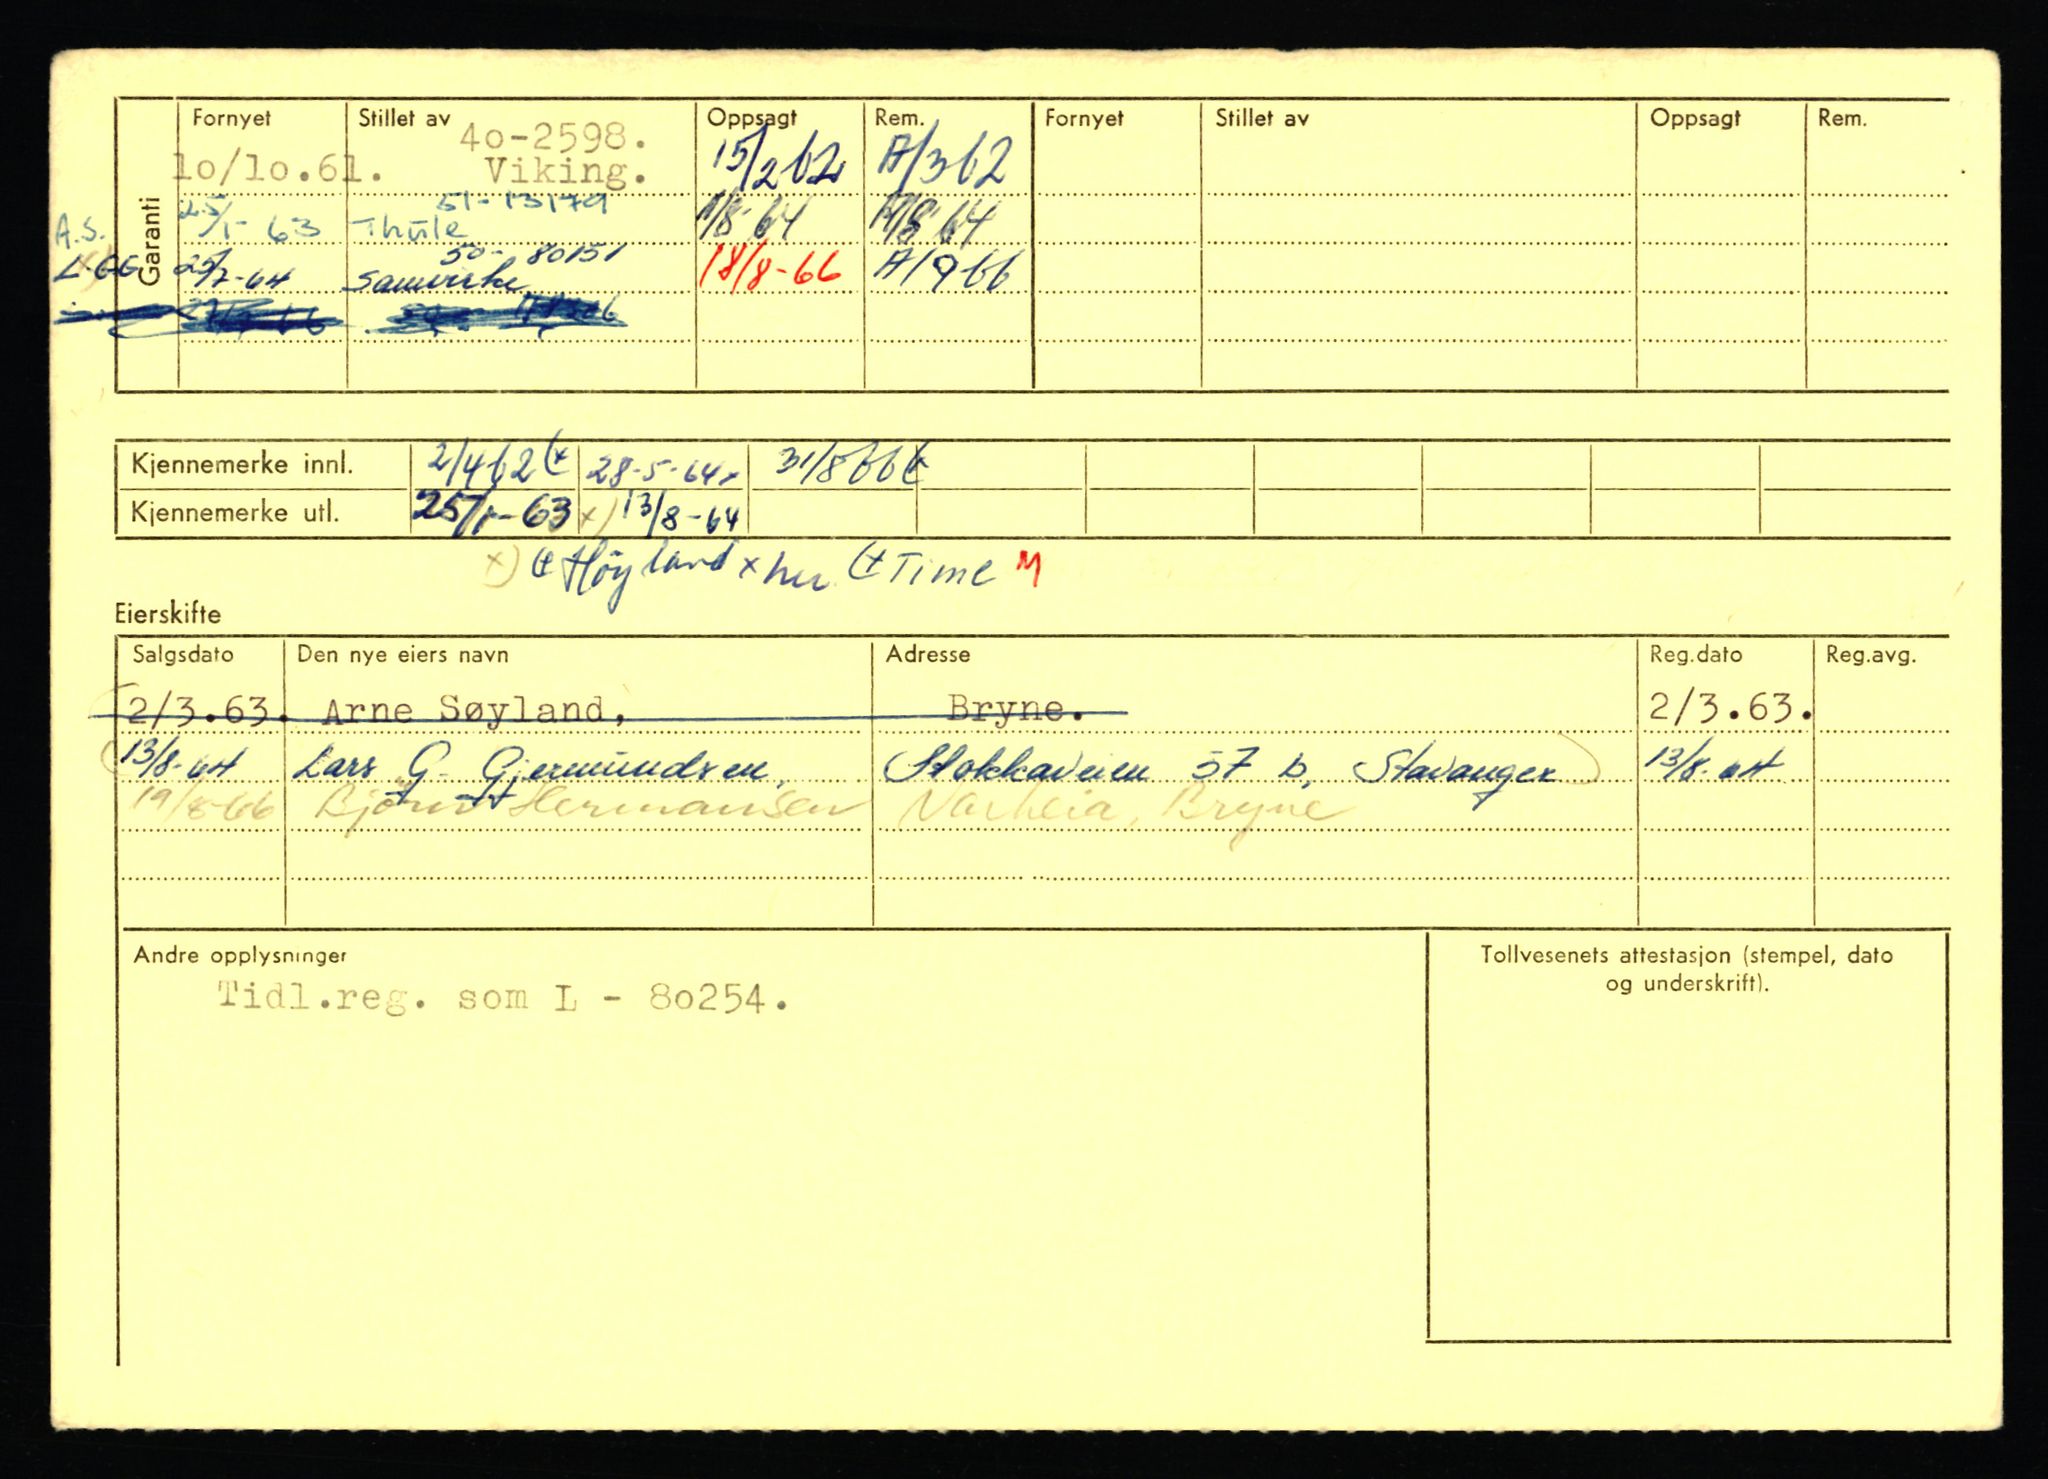 Garanti
Fornyet Stillet av Oppsagt Rem. Fornyet Stillet av Oppsagt Rem.
4o-2598.
lo/lo.6l. Viking. 15/2 62 A/3 62
51-13179
A.S. 25/1-63 Thule 1/8-64 A/8-64
50-80151
L.G.G. 25/7-64 Samvirke 18/8-66 A/9 66
Kjennemerke innl. 2/4 62 (+ 28-5-64 x 31/8 66 (+
Kjennemerke utl. 25/1-63 x) 13/8-64
x) (+ Höyland x her (+ Time M
Eierskifte
Salgsdato Den nye eiers navn Adresse Reg.dato Reg.avg.
2/3.63. Arne Søyland, Bryne. 2/3.63.
13/8-64 Lars G. Gjermundsen, Stokkaveien 57 b, Stavanger 13/8-64
19/8-66 Hermansen Bryne
Andre opplysninger
Tidl.reg. som L - 8o254.
Tollvesenets attestasjon (stempel, dato
og underskrift).